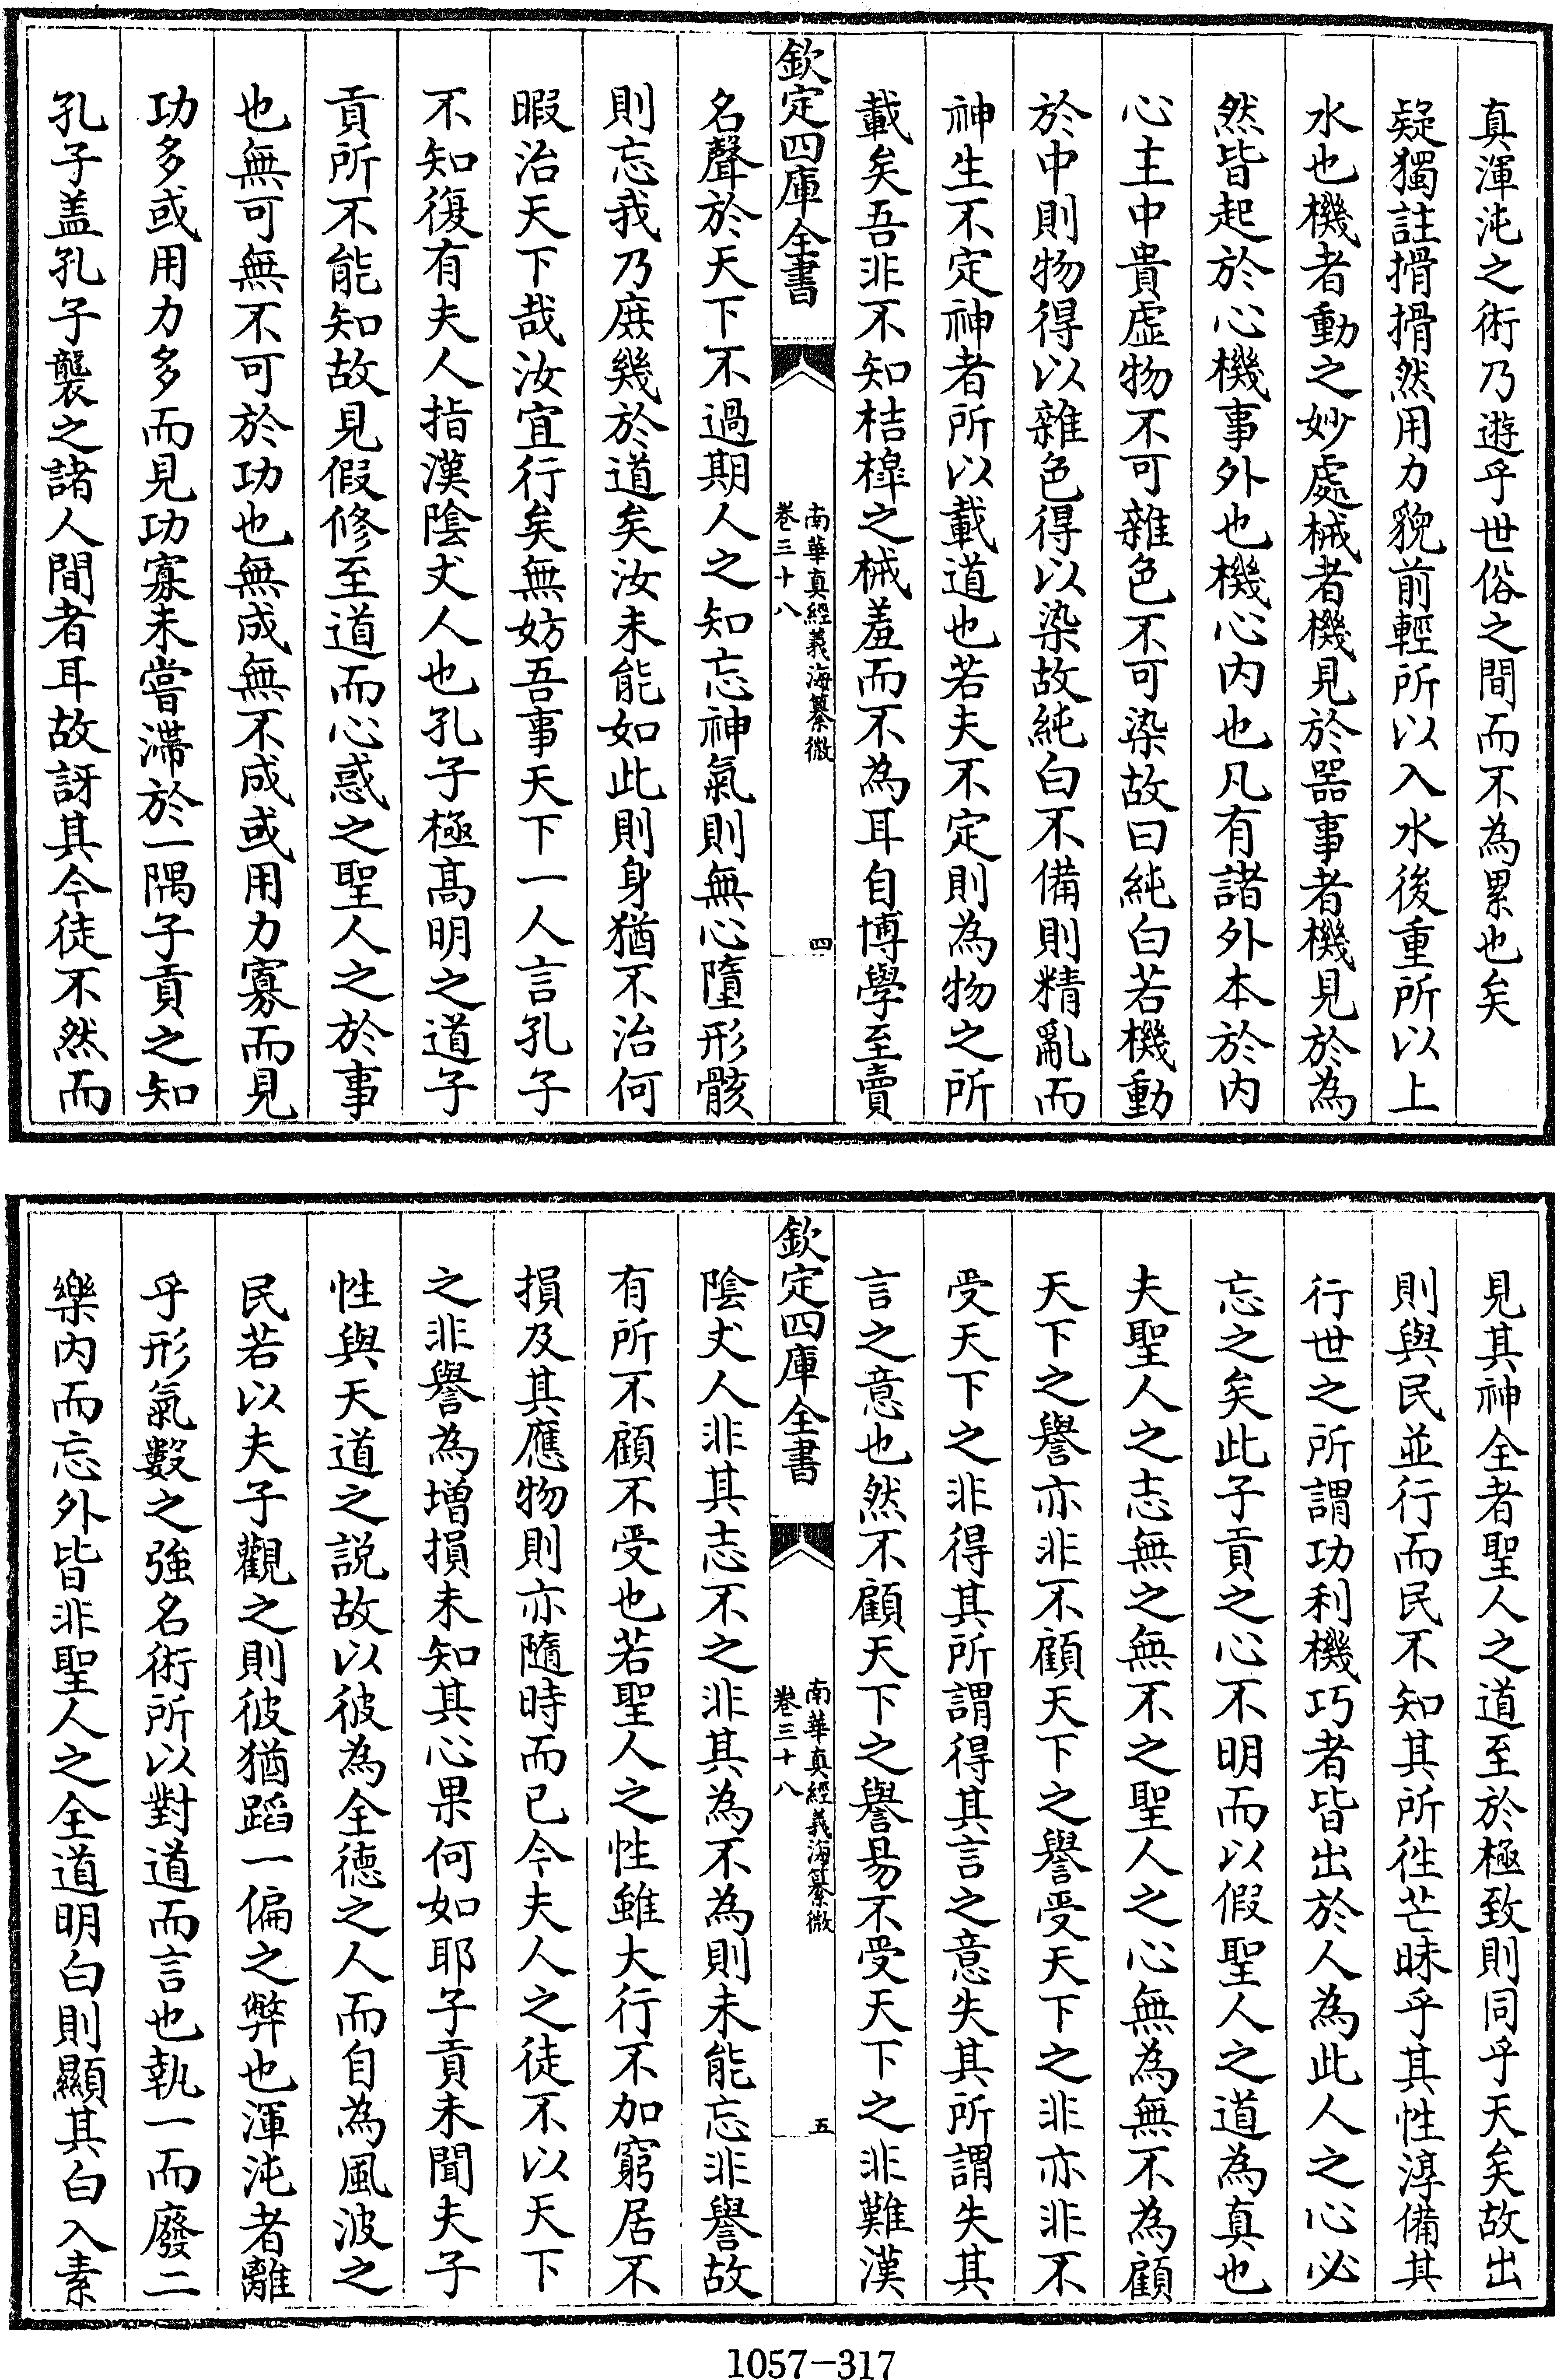 真渾沌之術乃遊乎世俗之間而不為累也矣
疑獨註搰搰然用力貌前輕所以入水後重所以上
水也機者動之妙處械者機見於器事者機見於為
然皆起於心機事外也機心内也凡有諸外本於内
心主中貴虚物不可雜色不可染故曰純白若機動
於中則物得以雜色得以染故純白不備則精亂而
神生不定神者所以載道也若夫不定則為物之所
載矣吾非不知桔橰之械羞而不為耳自博學至賣
欽定四庫全書
南華真經義海纂微
卷三十八
四
名聲於天下不過期人之知忘神氣則無心墮形骸
則忘我乃庶幾於道矣汝未能如此則身猶不治何
暇治天下哉汝宜行矣無妨吾事天下一人言孔子
不知復有夫人指漢陰丈人也孔子極髙明之道子
貢所不能知故見假修至道而心惑之聖人之於事
也無可無不可於功也無成無不成或用力寡而見
功多或用力多而見功寡未嘗滯於一隅子貢之知
孔子盖孔子襲之諸人間者耳故訝其今徒不然而
見其神全者聖人之道至於極致則同乎天矣故出
則與民並行而民不知其所徃芒昧乎其性淳備其
行世之所謂功利機巧者皆出於人為此人之心必
忘之矣此子貢之心不明而以假聖人之道為真也
夫聖人之志無之無不之聖人之心無為無不為顧
天下之譽亦非不顧天下之譽受天下之非亦非不
受天下之非得其所謂得其言之意失其所謂失其
言之意也然不顧天下之譽昜不受天下之非難漢
欽定四庫全書
南華真經義海纂微
卷三十八
五
陰丈人非其志不之非其為不為則未能忘非譽故
有所不顧不受也若聖人之性雖大行不加窮居不
損及其應物則亦隨時而已今夫人之徒不以天下
之非譽為増損未知其心果何如耶子貢未聞夫子
性與天道之説故以彼為全徳之人而自為風波之
民若以夫子觀之則彼猶蹈一偏之弊也渾沌者離
乎形氣數之強名術所以對道而言也執一而廢二
樂内而忘外皆非聖人之全道明白則顯其白入素
1057-317